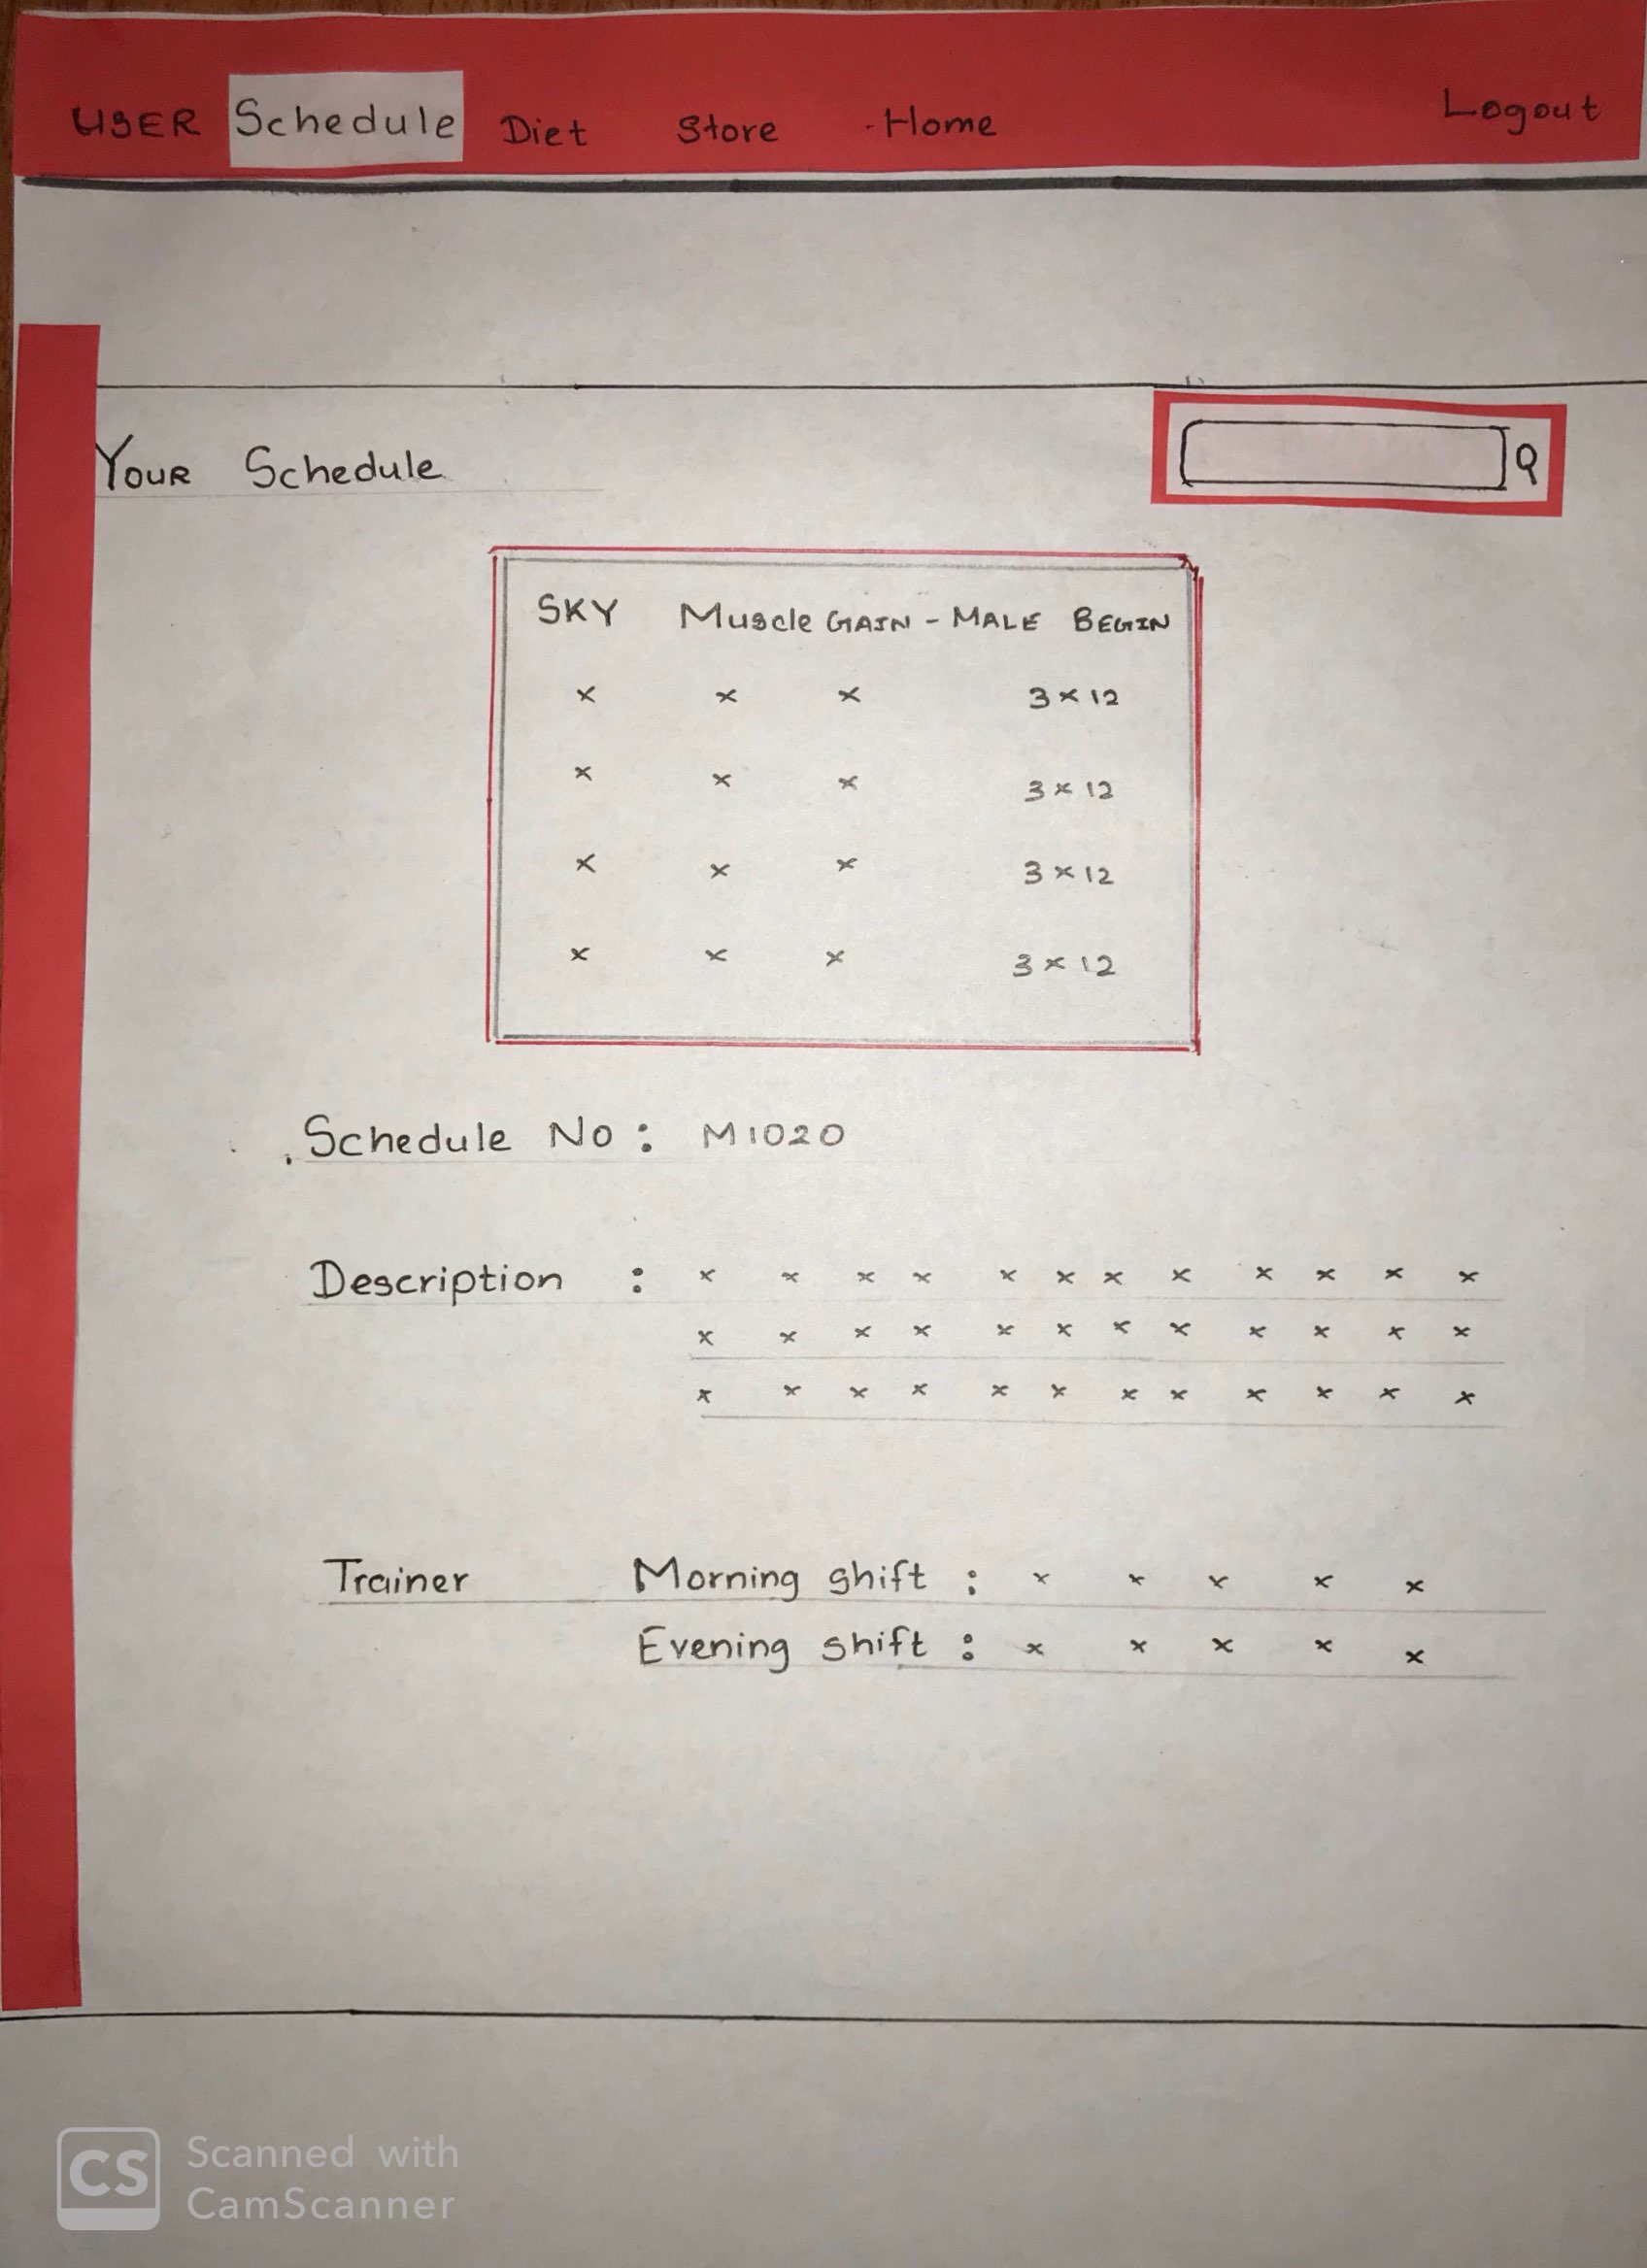 USER Schedule Diet Store Home Logout
Your Schedule
SKY Muscle GAIN - MALE BEGIN
x x x 3 x 12
x x x 3 x 12
x x x 3 x 12
x x x 3 x 12
Schedule No : M1020
Description : x x x x x x x x x x x x
x x x x x x x x x x x x
x x x x x x x x x x x x
Trainer Morning shift : x x x x x
Evening shift : x x x x x
CS Scanned with
CamScanner